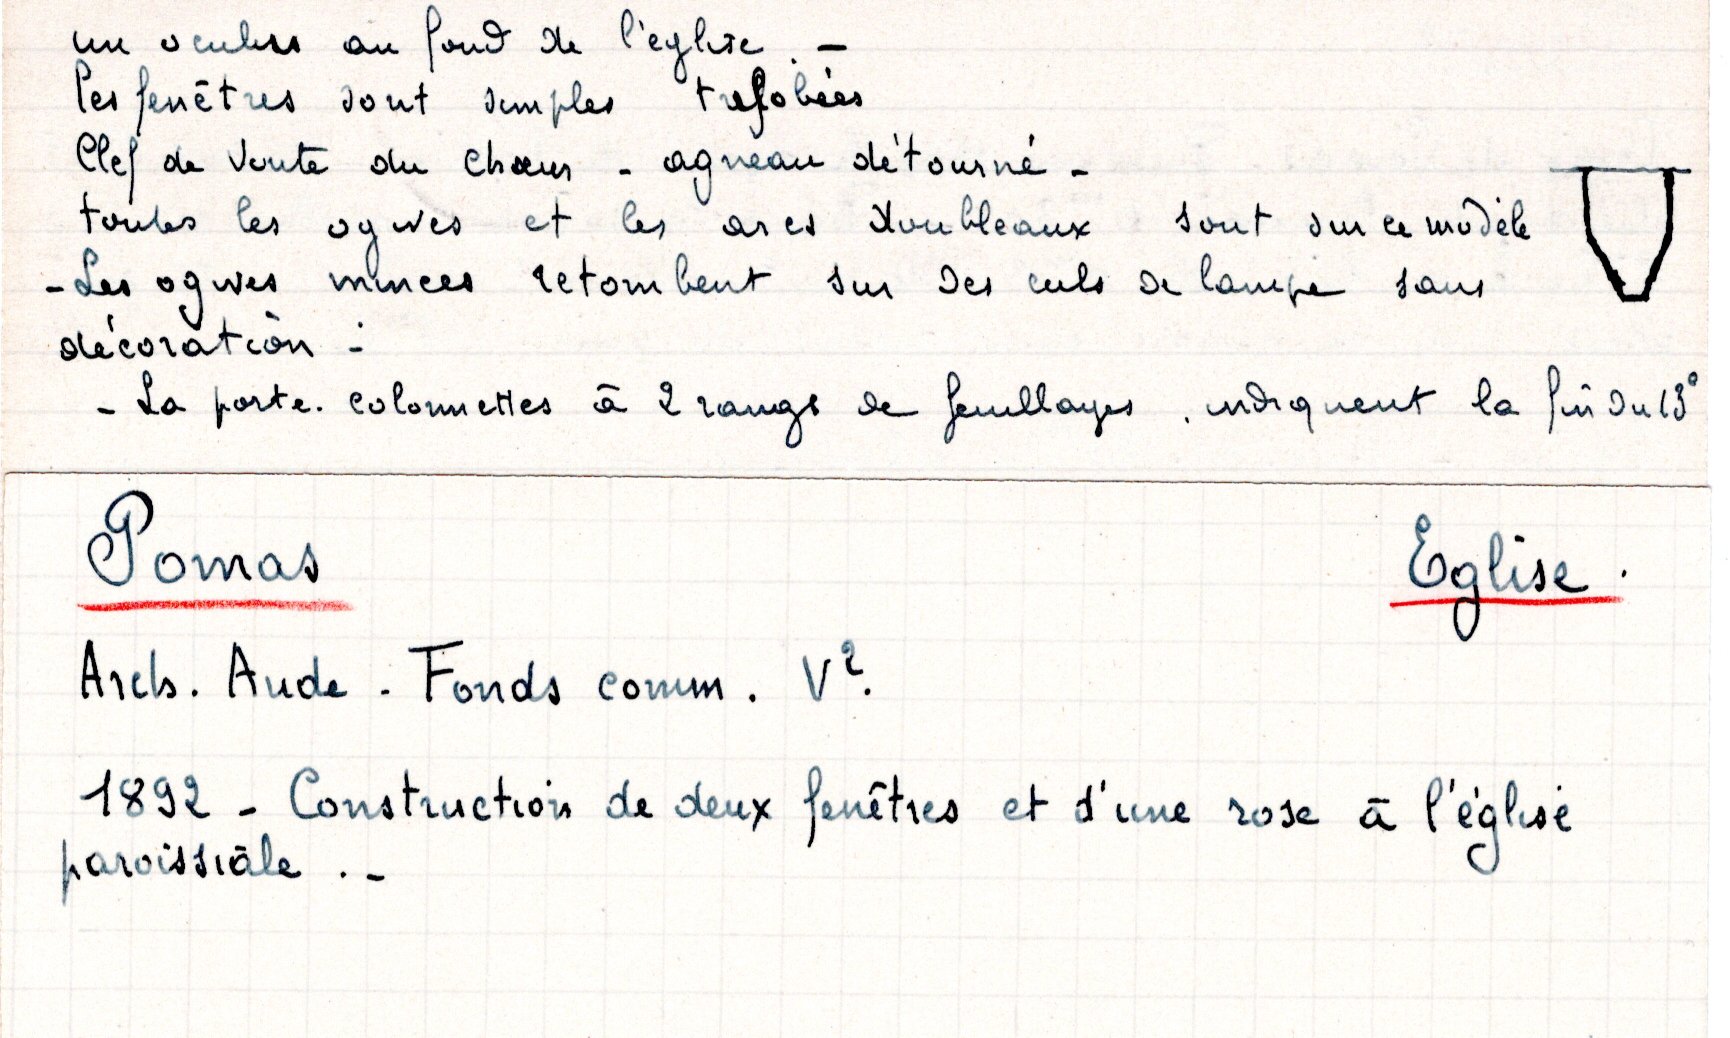 un oculus au fond de l'église. -
Les fenêtres sont simples trefobées
Clef de voute du chœur - agneau détourné -
toutes les ogives et les arcs doubleaux sont sur ce modèle
- Les ogives minces retombent sur des culs de lampe sans
décoration -
- La porte. colonnettes à 2 rangs de feuillages. indiquent la fin du 13°
Pomas Eglise.
Arch. Aude - Fonds comm. V².
1892 - Construction de deux fenêtres et d'une rose à l'église
paroissiale . -